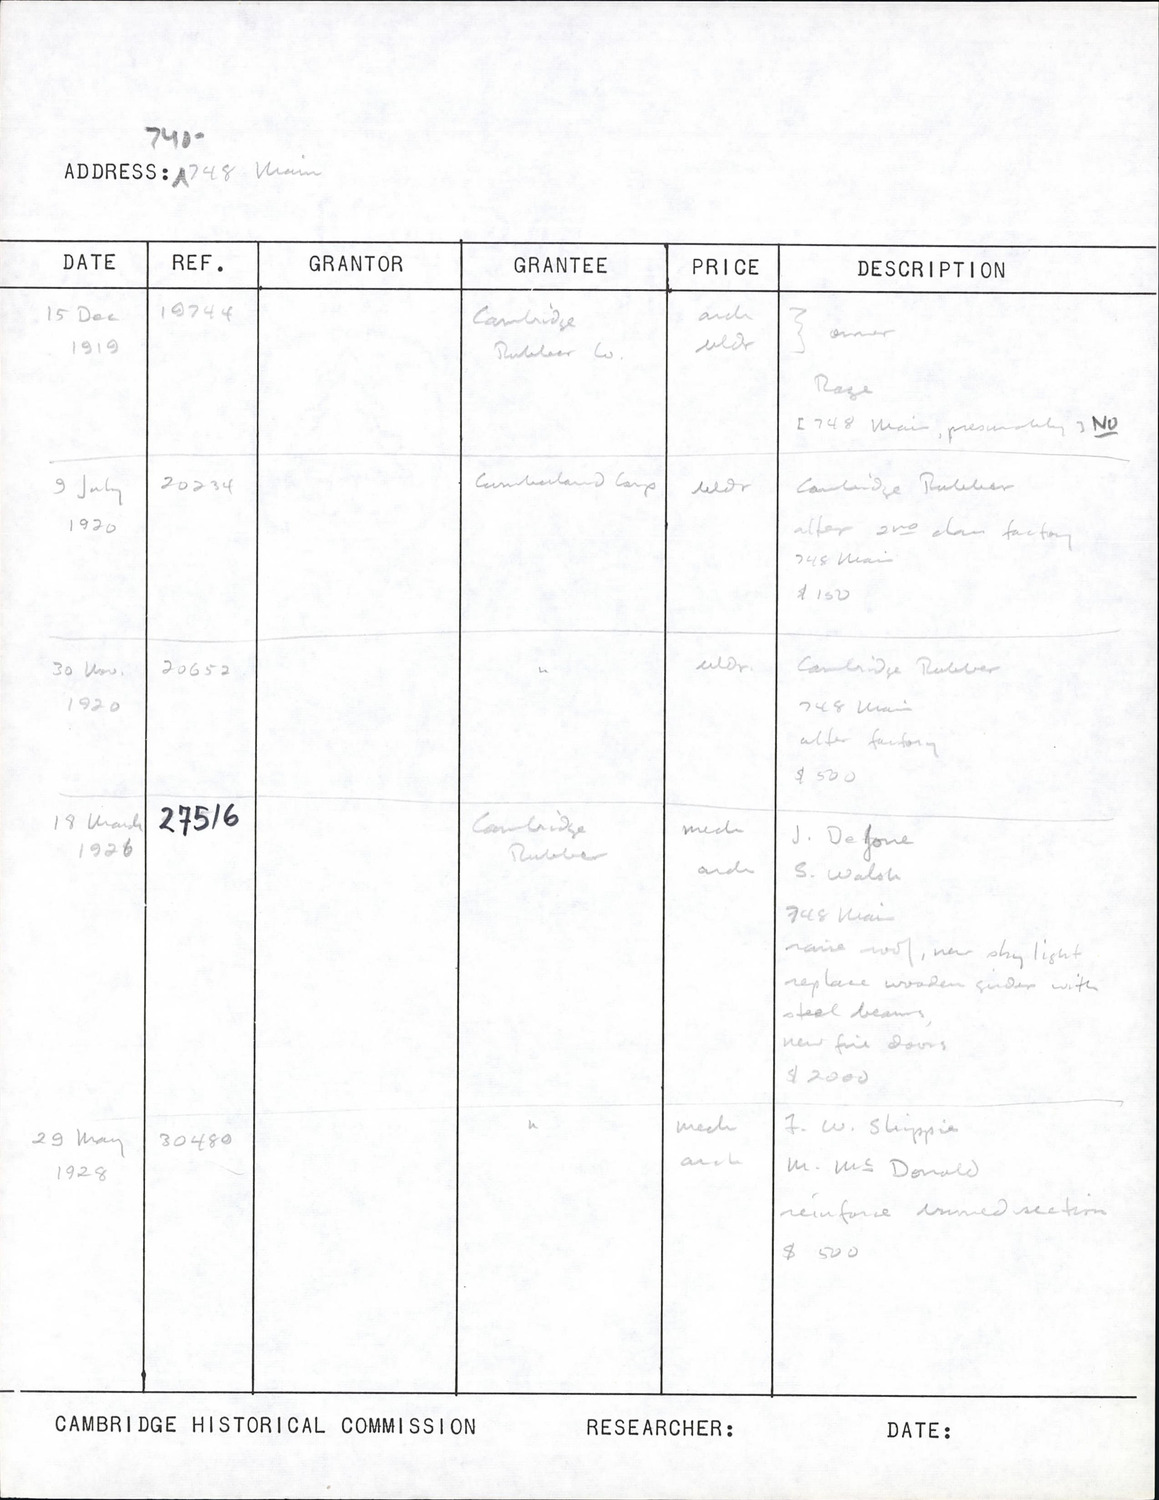 740-
ADDRESS: 748 Main
DATE REF. GRANTOR GRANTEE PRICE DESCRIPTION
15 Dec 19744 Cambridge arch } owner
1919 Rubber Co. bldr
Raze
[748 Main, presumably] NO
9 July 20234 Cumberland Corp bldr Cambridge Rubber
1920 alter 2nd class factory
748 Main
$150
30 Nov. 20652 " bldr. Cambridge Rubber
1920 748 Main
alter factory
$500
18 March 27516 Cambridge mech J. Defone
1926 Rubber arch S. Walsh
748 Main
raise roof, new sky light
replace wooden girder with
steel beams,
new fire doors
$2000
29 May 30480 " mech F. W. Shippie
1928 arch M. McDonald
reinforce burned section
$ 500
CAMBRIDGE HISTORICAL COMMISSION RESEARCHER: DATE: